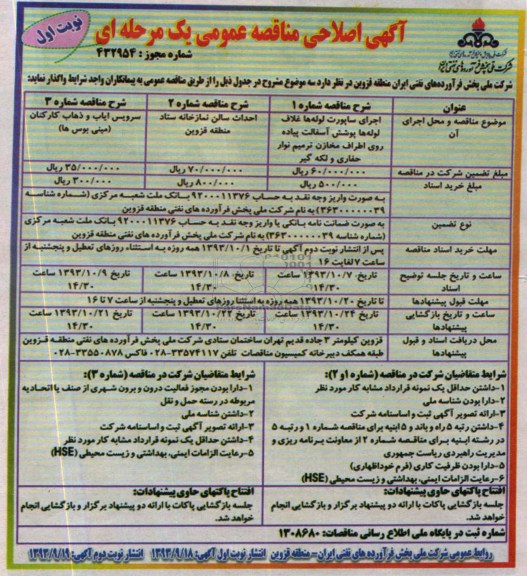 نوبت اول
آگهی اصلاحی مناقصه عمومی یک مرحله ای
شماره مجوز : ۴۳۲۹۵۴
شرکت ملی پخش فرآورده‌های نفتی ایران
شرکت ملی پخش فرآورده‌های نفتی ایران منطقه قزوین در نظر دارد سه موضوع مشروح در جدول ذیل را از طریق مناقصه عمومی به پیمانکاران واجد شرایط واگذار نماید:
عنوان شرح مناقصه شماره ۱ شرح مناقصه شماره ۲ شرح مناقصه شماره ۳
موضوع مناقصه و محل اجرای آن
اجرای ساپورت لوله‌ها غلاف
لوله‌ها پوشش آسفالت پیاده
روی اطراف مخازن ترمیم نوار
حفاری و لکه گیر
احداث سالن نمازخانه ستاد
منطقه قزوین
سرویس ایاب و ذهاب کارکنان
(مینی بوس ها)
مبلغ تضمین شرکت در مناقصه ۶۰/۰۰۰/۰۰۰ ریال ۷۰/۰۰۰/۰۰۰ ریال ۳۵/۰۰۰/۰۰۰ ریال
مبلغ خرید اسناد ۵۰۰/۰۰۰ ریال ۸۰۰/۰۰۰ ریال ۳۰۰/۰۰۰ ریال
به صورت واریز وجه نقد به حساب ۹۲۰۰۰۱۱۳۷۶ بانک ملت شعبه مرکزی (شماره شناسه
۳۶۳۰۰۰۰۰۰۰۳۹) به نام شرکت ملی پخش فرآورده های نفتی منطقه قزوین
نوع تضمین
به صورت ضمانت نامه بانکی یا واریز وجه نقد به حساب ۹۲۰۰۰۱۱۳۷۶ بانک ملت شعبه مرکزی
(شماره شناسه ۳۶۳۰۰۰۰۰۰۰۳۹) به نام شرکت ملی پخش فرآورده های نفتی منطقه قزوین
مهلت خرید اسناد مناقصه
پس از انتشار نوبت دوم آگهی تا تاریخ ۱۳۹۳/۱۰/۱ همه روزه به استثناء روزهای تعطیل و پنجشنبه از
ساعت ۷ لغایت ۱۶
ساعت و تاریخ جلسه توضیح
اسناد
تاریخ ۱۳۹۳/۱۰/۷ ساعت
۱۴/۳۰
تاریخ ۱۳۹۳/۱۰/۸ ساعت
۱۴/۳۰
تاریخ ۱۳۹۳/۱۰/۹ ساعت
۱۴/۳۰
مهلت قبول پیشنهادها
تا تاریخ ۱۳۹۳/۱۰/۲۰ همه روزه به استثنا روزهای تعطیل و پنجشنبه از ساعت ۷ تا ۱۶
ساعت و تاریخ بازگشایی
پیشنهادها
تاریخ ۱۳۹۳/۱۰/۲۴ ساعت
۱۴/۳۰
تاریخ ۱۳۹۳/۱۰/۲۲ ساعت
۱۴/۳۰
تاریخ ۱۳۹۳/۱۰/۲۱ ساعت
۱۴/۳۰
محل دریافت اسناد و قبول
پیشنهادها
قزوین کیلومتر ۳ جاده قدیم تهران ساختمان ستادی شرکت ملی پخش فرآورده های نفتی منطقه قزوین
طبقه همکف دبیرخانه کمیسیون مناقصات تلفن ۳۳۵۷۴۱۱۷-۰۲۸ فاکس ۳۳۵۵۰۸۷۸-۰۲۸
شرایط متقاضیان شرکت در مناقصه (شماره ۱ و ۲):
۱-داشتن حداقل یک نمونه قرارداد مشابه کار مورد نظر
۲-دارا بودن شناسه ملی
۳-ارائه تصویر آگهی ثبت و اساسنامه شرکت
۴-داشتن رتبه ۵ راه و باند و ۵ ابنیه برای مناقصه شماره ۱ و رتبه ۵
در رشته ابنیه برای مناقصه شماره ۲ از معاونت برنامه ریزی و
مدیریت راهبردی ریاست جمهوری
۵-دارا بودن ظرفیت کاری (فرم خوداظهاری)
۶-رعایت الزامات ایمنی، بهداشتی و زیست محیطی (HSE)
شرایط متقاضیان شرکت در مناقصه (شماره ۳):
۱-دارا بودن مجوز فعالیت درون و برون شهری از صنف یا اتحادیه
مربوطه در رسته حمل و نقل
۲-داشتن شناسه ملی
۳-ارائه تصویر آگهی ثبت و اساسنامه شرکت
۴-داشتن حداقل یک نمونه قرارداد مشابه کار مورد نظر
۵-رعایت الزامات ایمنی، بهداشتی و زیست محیطی (HSE)
افتتاح پاکتهای حاوی پیشنهادات:
جلسه بازگشایی پاکات با ارائه دو پیشنهاد برگزار و بازگشایی انجام
خواهد شد.
افتتاح پاکتهای حاوی پیشنهادات:
جلسه بازگشایی پاکات با ارائه دو پیشنهاد برگزار و بازگشایی انجام
خواهد شد.
شماره ثبت در پایگاه ملی اطلاع رسانی مناقصات: ۱۳۰۸۶۸۰
روابط عمومی شرکت ملی پخش فرآورده های نفتی ایران-منطقه قزوین انتشار نوبت اول آگهی: ۱۳۹۳/۹/۱۸ انتشار نوبت دوم آگهی: ۱۳۹۳/۹/۱۹